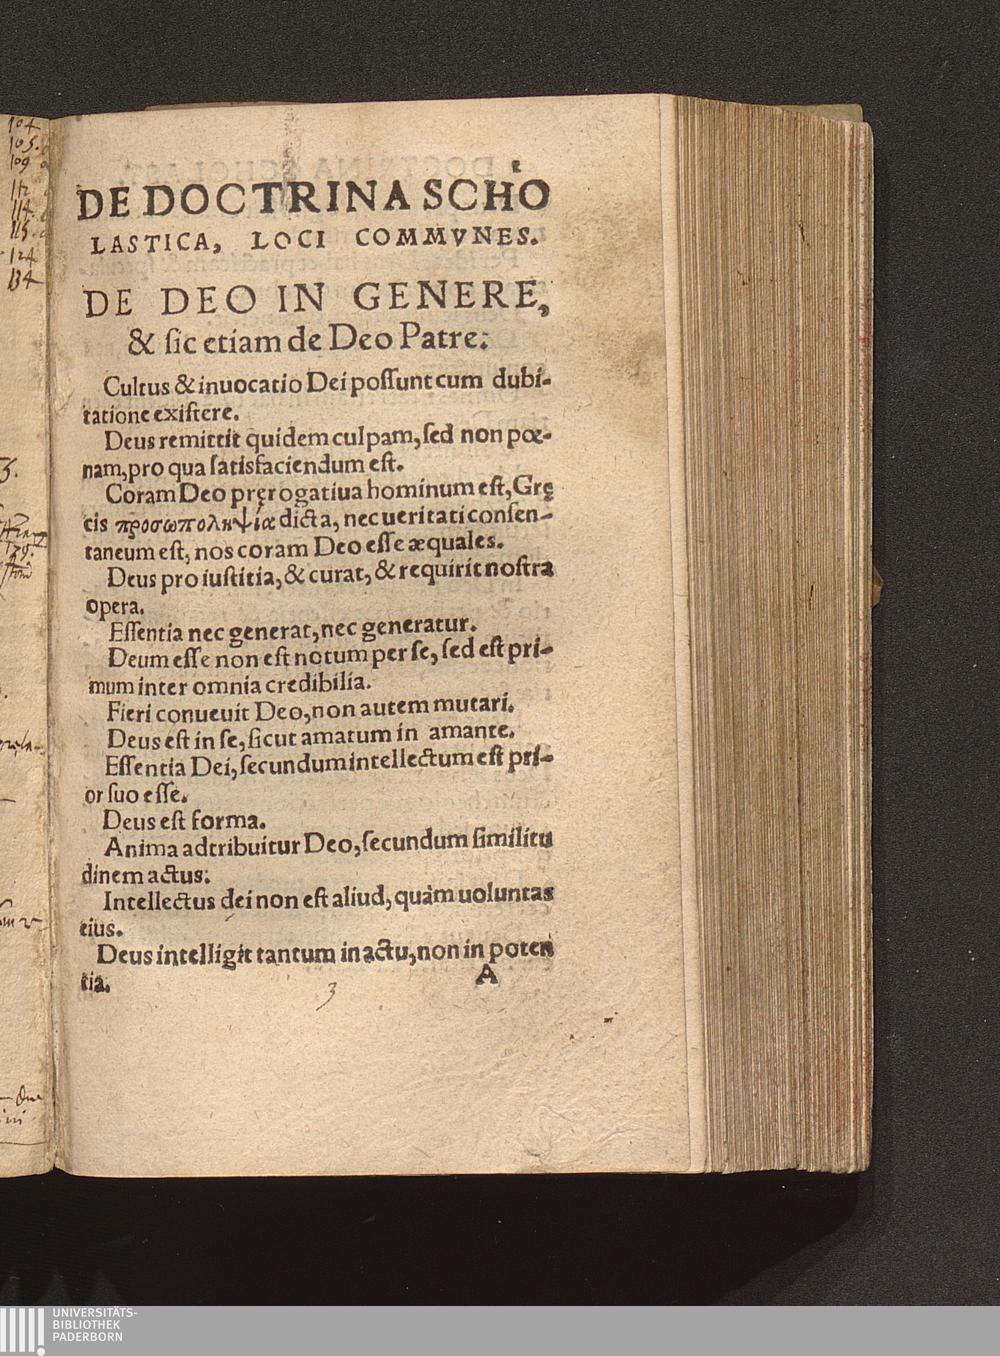 104
105.
109
112
114
115.
124
134
DE DOCTRINA SCHO
LASTICA, LOCI COMMVNES.
DE DEO IN GENERE,
& ſic etiam de Deo Patre:
Cultus & inuocatio Dei poſſunt cum dubi-
tatione exiſtere.
Deus remittit quidem culpam, ſed non pœ-
nam, pro qua ſatisfaciendum eſt.
Coram Deo pręrogatiua hominum eſt, Grę
cis προσωποληψία dicta, nec ueritati conſen-
taneum eſt, nos coram Deo eſſe æquales.
Deus pro iuſtitia, & curat, & requirit noſtra
opera.
Eſſentia nec generat, nec generatur.
Deum eſſe non eſt notum per ſe, ſed eſt pri-
mum inter omnia credibilia.
Fieri conueuit Deo, non autem mutari.
Deus eſt in ſe, ſicut amatum in amante.
Eſſentia Dei, ſecundum intellectum eſt pri-
or ſuo eſſe.
Deus eſt forma.
Anima adtribuitur Deo, ſecundum ſimilitu
dinem actus:
Intellectus dei non eſt aliud, quàm uoluntas
eius.
Deus intelligit tantum in actu, non in poten
tia.
A
3
UNIVERSITÄTS-
BIBLIOTHEK
PADERBORN